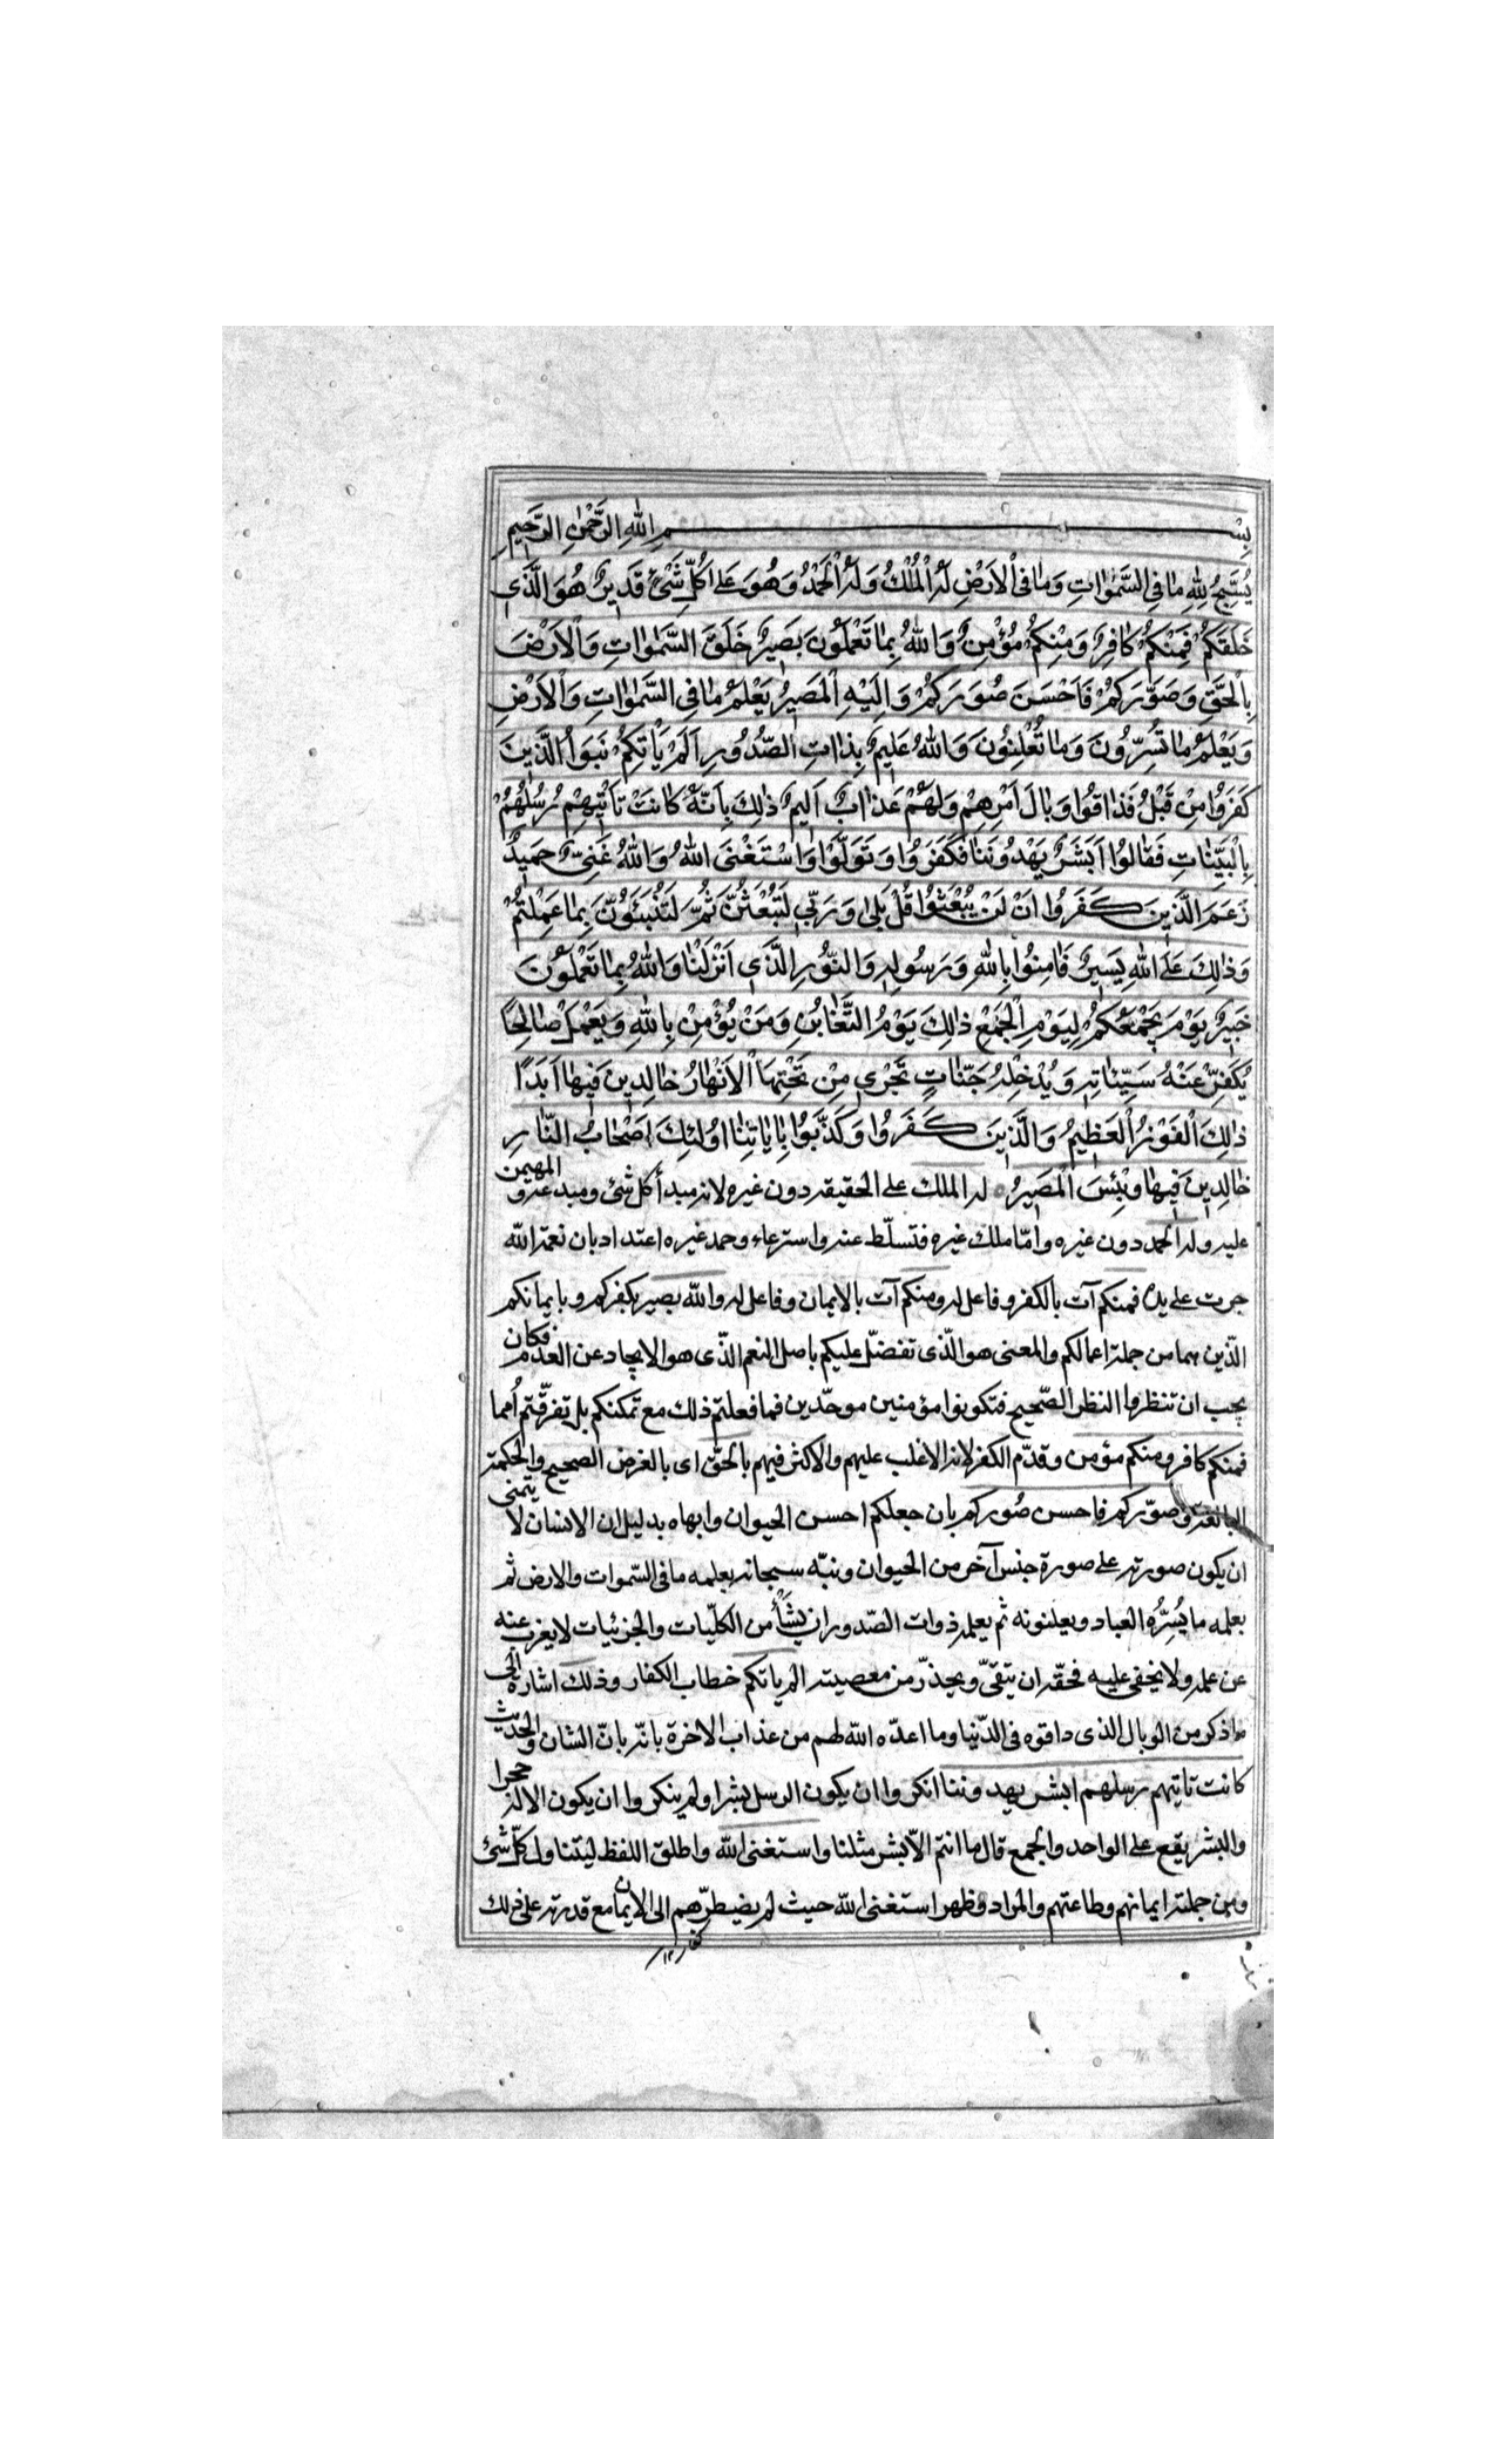 بِسْمِ اللهِ الرَّحْمٰنِ الرَّحِيمِ
يُسَبِّحُ لِلّٰهِ مٰا فِي السَّمٰوٰاتِ وَمٰا فِي الْاَرْضِ لَهُ الْمُلْكُ وَلَهُ الْحَمْدُ وَهُوَ عَلٰى كُلِّ شَيْءٍ قَدِيرٌ هُوَ الَّذِي
خَلَقَكُمْ فَمِنْكُمْ كٰافِرٌ وَمِنْكُمْ مُؤْمِنٌ وَاللهُ بِمٰا تَعْمَلُونَ بَصِيرٌ خَلَقَ السَّمٰوٰاتِ وَالْاَرْضَ
بِالْحَقِّ وَصَوَّرَكُمْ فَاَحْسَنَ صُوَرَكُمْ وَاِلَيْهِ الْمَصِيرُ يَعْلَمُ مٰا فِي السَّمٰوٰاتِ وَالْاَرْضِ
وَيَعْلَمُ مٰا تُسِرُّونَ وَمٰا تُعْلِنُونَ وَاللهُ عَلِيمٌ بِذٰاتِ الصُّدُورِ اَلَمْ يَاْتِكُمْ نَبَوُا الَّذِينَ
كَفَرُوا مِنْ قَبْلُ فَذٰاقُوا وَبٰالَ اَمْرِهِمْ وَلَهُمْ عَذٰابٌ اَلِيمٌ ذٰلِكَ بِاَنَّهُ كٰانَتْ تَاْتِيهِمْ رُسُلُهُمْ
بِالْبَيِّنٰاتِ فَقٰالُوا اَبَشَرٌ يَهْدُونَنٰا فَكَفَرُوا وَتَوَلَّوْا وَاسْتَغْنَى اللهُ وَاللهُ غَنِيٌّ حَمِيدٌ
زَعَمَ الَّذِينَ كَفَرُوا اَنْ لَنْ يُبْعَثُوا قُلْ بَلٰى وَرَبِّي لَتُبْعَثُنَّ ثُمَّ لَتُنَبَّئُونَّ بِمٰا عَمِلْتُمْ
وَذٰلِكَ عَلَى اللهِ يَسِيرٌ فَاٰمِنُوا بِاللهِ وَرَسُولِهِ وَالنُّورِ الَّذِي اَنْزَلْنٰا وَاللهُ بِمٰا تَعْمَلُونَ
خَبِيرٌ يَوْمَ يَجْمَعُكُمْ لِيَوْمِ الْجَمْعِ ذٰلِكَ يَوْمُ التَّغٰابُنِ وَمَنْ يُؤْمِنْ بِاللهِ وَيَعْمَلْ صٰالِحًا
يُكَفِّرْ عَنْهُ سَيِّئٰاتِهِ وَيُدْخِلْهُ جَنّٰاتٍ تَجْرِي مِنْ تَحْتِهَا الْاَنْهٰارُ خٰالِدِينَ فِيهٰا اَبَدًا
ذٰلِكَ الْفَوْزُ الْعَظِيمُ وَالَّذِينَ كَفَرُوا وَكَذَّبُوا بِاٰيٰاتِنٰا اُولٰئِكَ اَصْحٰابُ النّٰارِ
خٰالِدِينَ فِيهٰا وَبِئْسَ الْمَصِيرُ له الملك على الحقيقه دون غيره لانه مبدأ كل شئ ومبدعه و المهيمن
عليه وله الحمد دون غيره وامّا ملك غيره فتسلّط عنه واسترعاء وحمد غيره اعتداد بان نعمة الله
جرت على يده فمنكم آت بالكفر وفاعل له ومنكم آت بالايمان وفاعل له والله بصير بكفركم وبايمانكم
الذّين هما من جملة اعمالكم والمعنى هو الّذى تفضّل عليكم باصل النعم الذّى هو الايجاد عن العدم فكان
يجب ان تنظروا النظر الصّحيح فتكونوا مؤمنين موحّدين فما فعلتم ذلك مع تمكنكم بل تفرقّتم أمما
فمنكم كافر ومنكم مؤمن وقدّم الكفر لانه الاغلب عليهم والاكثر فيهم بالحقّ اى بالغرض الصحيح والحكمة
البالغة وصوّركم فاحسن صُوركم بان جعلكم احسن الحيوان وابهاه بدليل ان الانسان لا يتمنى
ان يكون صورته على صورة جنس آخر من الحيوان ونبّه سبحانه بعلمه ما فى السّموات والارض ثم
بعلمه ما يُسِرُّه العباد ويعلنونه ثم يعلمه ذوات الصّدور ان شيأ من الكلّيات والجزئيات لا يعزب عنه
عن علمه ولا يخفى عليه فحقّه ان يتقىّ ويحذّر من معصيته الم ياتكم خطاب الكفار وذلك اشارة الى
ما ذكر من الوبال الذى ذاقوه فى الدّنيا وما اعدّه الله لهم من عذاب الاخرة بانّه بانّ الشان والحديث
كانت تاتيهم رسلهم ابشر يهدوننا انكروا ان يكون الرسل بشرا ولم ينكروا ان يكون الاله حجرا
والبشر يقع على الواحد والجمع قال ما انتم الاّ بشر مثلنا واستغنى الله واطلق اللفظ ليتناول كلّ شئ
ومن جملته ايمانهم وطاعتهم والمراد وظهر استغنى الله حيث لم يضطرّهم الى الايمان مع قدرته على ذلك